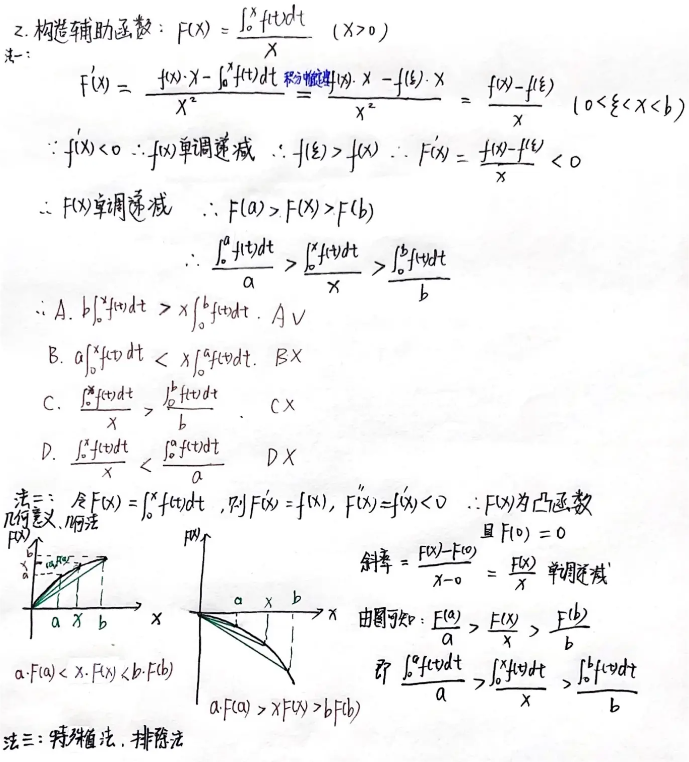 2. 构造辅助函数: F(x) = ∫₀ˣf(t)dt / x (x>0)
法一:
F'(x) = (f(x)·x − ∫₀ˣf(t)dt) / x² 积分中值定理 = (f(x)·x − f(ξ)·x) / x² = (f(x)−f(ξ)) / x (0<ξ<x<b)
∵ f'(x)<0 ∴ f(x)单调递减 ∴ f(ξ)>f(x) ∴ F'(x) = (f(x)−f(ξ)) / x < 0
∴ F(x)单调递减 ∴ F(a)>F(x)>F(b)
∴ ∫₀ᵃf(t)dt / a > ∫₀ˣf(t)dt / x > ∫₀ᵇf(t)dt / b
∴ A. b∫₀ˣf(t)dt > x∫₀ᵇf(t)dt. A√
B. a∫₀ˣf(t)dt < x∫₀ᵃf(t)dt. B×
C. ∫₀ˣf(t)dt / x > ∫₀ᵇf(t)dt / b . C×
D. ∫₀ˣf(t)dt / x < ∫₀ᵃf(t)dt / a D×
法二: 令F(x) = ∫₀ˣf(t)dt, 则F'(x) = f(x), F''(x)=f'(x)<0 ∴ F(x)为凸函数
几何意义、几何法
且F(0) = 0
F(x)
b
x
a
a x b x
a·F(a) < x·F(x) < b·F(b)
F(x)
a x b x
a·F(a) > xF(x) > bF(b)
斜率 = (F(x)−F(0)) / (x−0) = F(x) / x 单调递减
由图可知: F(a) / a > F(x) / x > F(b) / b
即 ∫₀ᵃf(t)dt / a > ∫₀ˣf(t)dt / x > ∫₀ᵇf(t)dt / b
法三: 特殊值法, 排除法